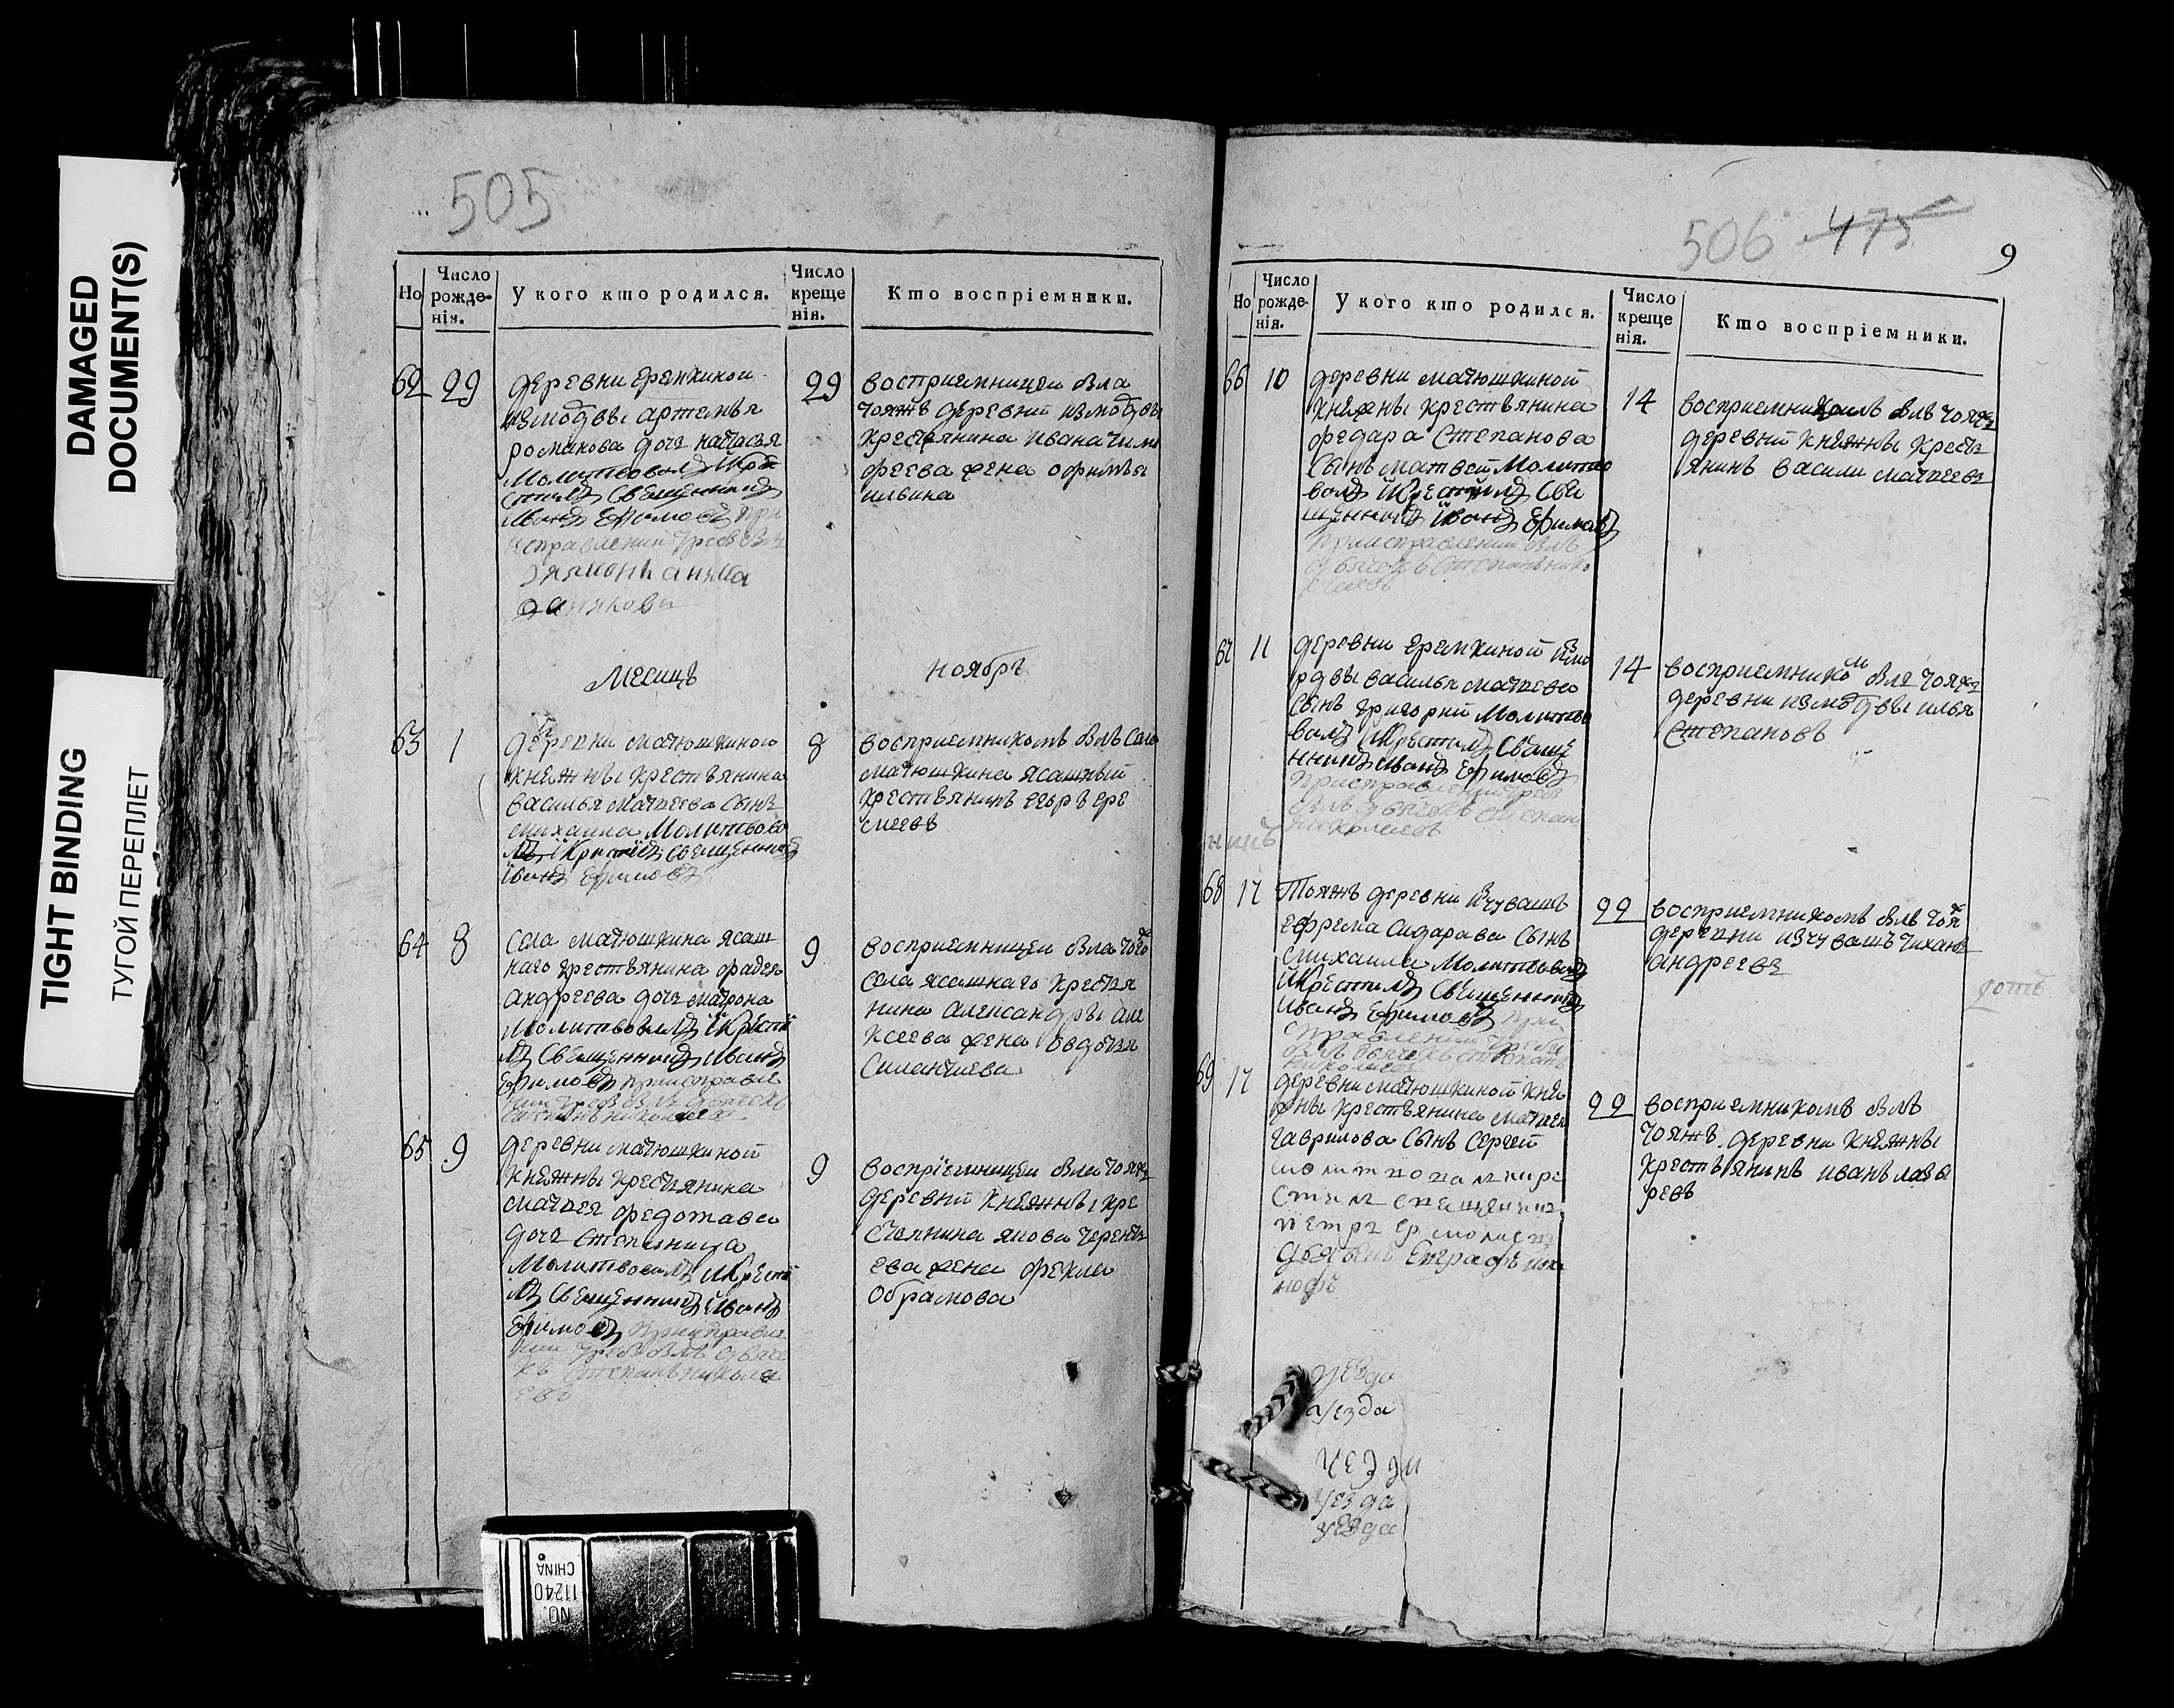 DAMAGED
DOCUMENT(S)
TIGHT BINDING
ТУГОЙ ПЕРЕПЛЕТ
505
Но
Число
рожде-
нія.
У кого кто родился.
Число
креще
нія.
Кто воспріемники.
62 29
деревни еремкиной
измордвы артемья
романова дочь настасья
Молитвовалъ Икре
стилъ Священникъ
Иванъ Ефимовъ при
исправлении
29
восприемницей была
тояжъ деревни измордвы
крестьянина ивана тимо
феева жена офимья
ильина
Месяцъ ноябрь
63 1
деревни матюшкиной
княжны крестьянина
василья матвеева сынъ
михаила Молитвова
лъ Икрестилъ священникъ
Иванъ Ефимовъ
8
восприемникомъ былъ села
матюшкина ясашный
крестьянинъ егоръ ере
меевъ
64 8
села матюшкина ясаш
наго крестьянина фадея
андреева дочь матрона
Молитвовалъ Икрести
лъ Священникъ Иванъ
Ефимовъ приисправле
нии треб былъ дьячекъ
степанъ николаевъ
9
восприемницей была тогож
села ясашнаго крестья
нина александры але
ксеева жена овдотья
Силантиева
65 9
деревни матюшкиной
княжны крестьянина
матвея федотава
дочь степанида
Молитвовалъ Икрести
лъ Священникъ Иванъ
Ефимовъ приисправле
нии треб былъ дьяче
къ степанъ никола
евъ
9
восприемницей была тояжъ
деревни княжны кре
стьянина якова терентъ
ева жена фекла
обрамова
506 475
9
Но
Число
рожде-
нія.
У кого кто родился.
Число
креще
нія.
Кто воспріемники.
66 10
деревни матюшкиной
княжны крестьянина
федара Степанова
Сынъ матвей Молитво
валъ Икрестилъ Свя
щенникъ Иванъ Ефимовъ
приисправлении былъ
дьячекъ Степанъ нико
лаевъ
14
восприемникомъ былъ тояжъ
деревни княжны кресть
янинъ василий матвеевъ
67 11
деревни еремкиной измо
рдвы василья матвева
Сынъ григорий Молитво
валъ Икрестилъ Свяще
нникъ Иванъ Ефимовъ
приисправлении треб
былъ дьячекъ степанъ
николаевъ
14
восприемником былъ тояжъ
деревни измордвы илья
Степановъ
68 17
Тояжъ деревни изчувашъ
ефрема Сидарава Сынъ
михаила Молитвовалъ
Икрестилъ Священникъ
Иванъ Ефимовъ при
исправлении треб
былъ дьячекъ степанъ
николаевъ
22
восприемникомъ былъ тояж
деревни изчувашъ тиханъ
андреевъ
69 17
деревни матюшкиной кня
жны крестьянина матвея
гаврилова Сынъ Сергей
молитвовалъ икре
стилъ священникъ
петръ ермолаевъ
дьячекъ Евграфъ ива
нофъ
22
восприемникомъ былъ
тояжъ деревни княжны
крестьянинъ иванъ лаза
ревъ
уезда
уезда
уезда
уезда
NO.
11240
CHINA